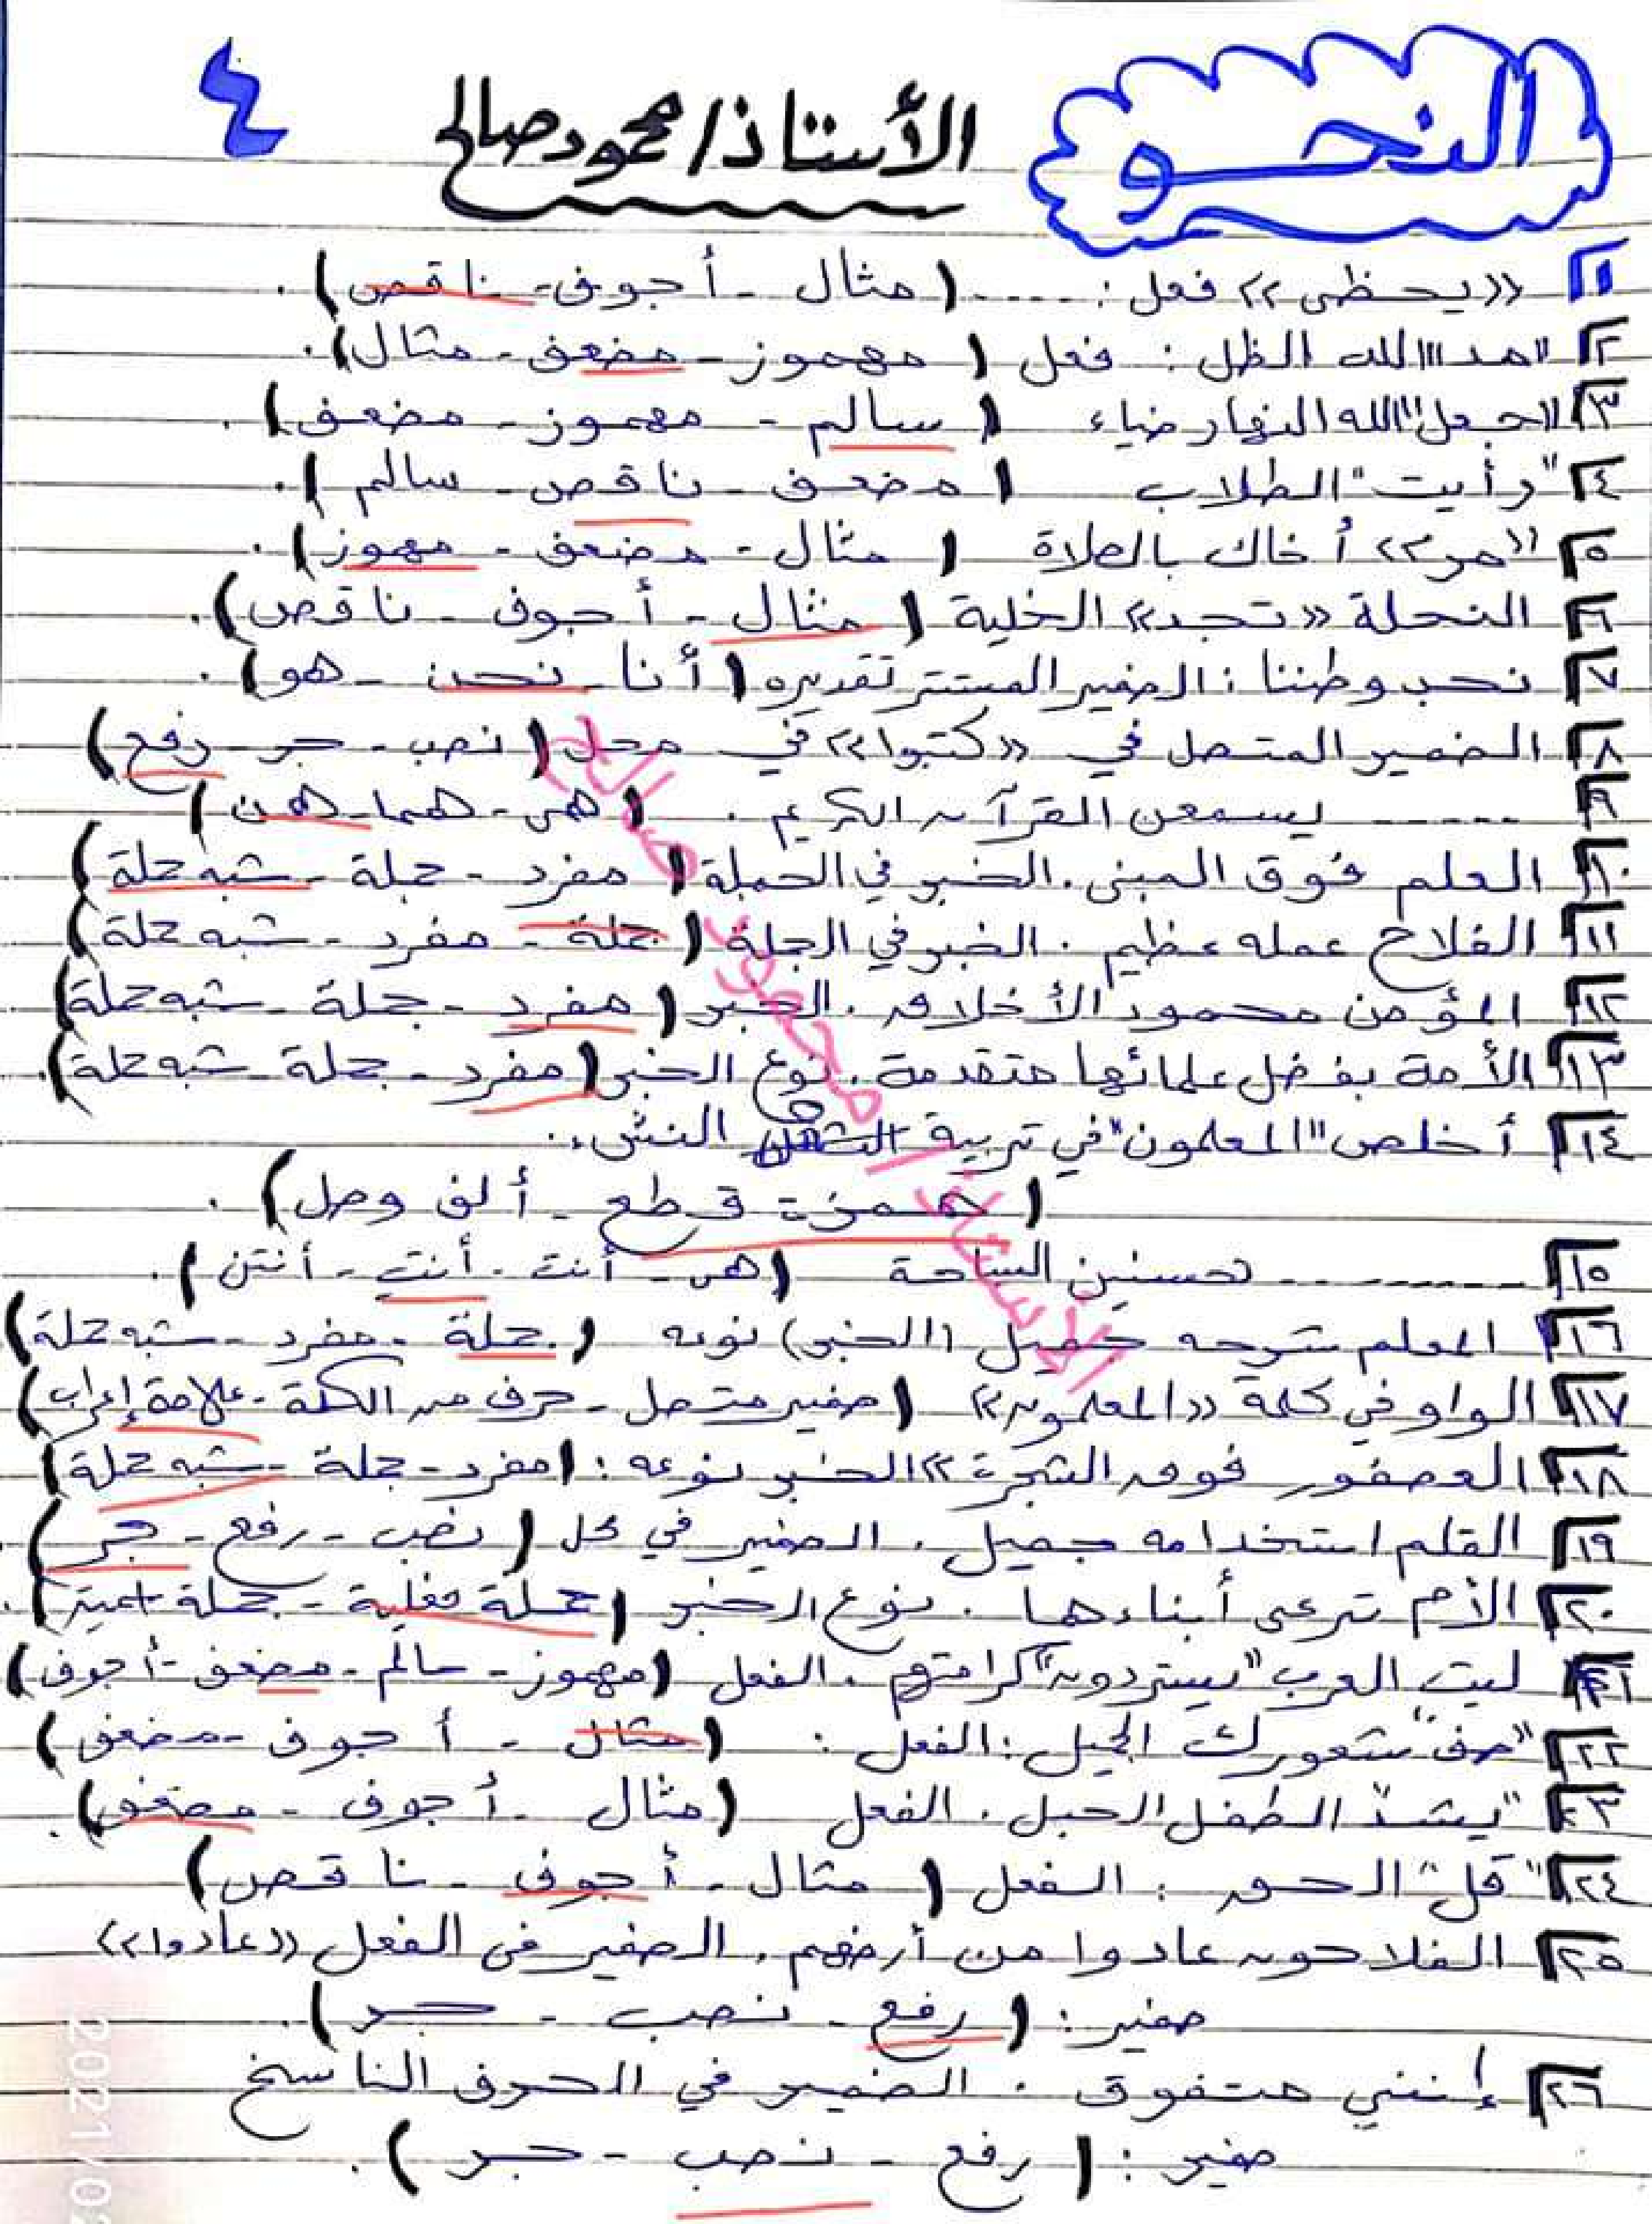 النحو
الأستاذ/محمود صالح
٤
١ «يحظى» فعل: ..... (مثال - أجوف - ناقص).
٢ "مد" الله الظل: فعل (مهموز - مضعف - مثال).
٣ "جعل" الله النهار ضياء (سالم - مهموز - مضعف).
٤ "رأيت" الطلاب (مضعف - ناقص - سالم).
٥ «مر» أخاك بالصلاة (مثال - مضعف - مهموز).
٦ النحلة «تجد» الخلية (مثال - أجوف - ناقص).
٧ نحب وطننا: الضمير المستتر تقديره (أنا - نحن - هو).
٨ الضمير المتصل في «كتبوا» في محل (نصب - جر - رفع)
٩ ...... يسمعن القرآن الكريم. (هى - هما - هن)
١٠ العلم فوق المبنى. الخبر في الجملة (مفرد - جملة - شبه جملة)
١١ الفلاح عمله عظيم. الخبر في الجملة (جملة - مفرد - شبه جملة)
١٢ المؤمن محمود الأخلاق. الخبر (مفرد - جملة - شبه جملة).
١٣ الأمة بفضل علمائها متقدمة. نوع الخبر (مفرد - جملة - شبه جملة).
١٤ أخلص "المعلمون" في تربية النشء.
(همزة قطع - ألف وصل).
١٥ ......... تحسنين السباحة (هى - أنتَ - أنتِ - أنتن).
١٦ المعلم شرحه جميل (الخبر) نوعه (جملة - مفرد - شبه جملة)
١٧ الواو في كلمة «المعلمون» (ضمير متصل - حرف من الكلمة - علامة إعراب)
١٨ العصفور فوق الشجرة» الخبر نوعه: (مفرد - جملة - شبه جملة)
١٩ القلم استخدامه جميل. الضمير في محل (نصب - رفع - جر).
٢٠ الأم ترعى أبناءها. نوع الخبر (جملة فعلية - جملة اسمية).
٢١ ليت العرب "يستردون" كرامتهم. الفعل (مهموز - سالم - مضعف - أجوف)
٢٢ "صف" شعورك الجميل: الفعل: (مثال - أجوف - مضعف)
٢٣ "يشدّ" الطفل الحبل. الفعل (مثال - أجوف - مضعف).
٢٤ "قل" الحق: الفعل (مثال - أجوف - ناقص)
٢٥ الفلاحون عادوا من أرضهم. الضمير فى الفعل «عادوا»
ضمير: (رفع - نصب - جر).
٢٦ إنني متفوق. الضمير في الحرف الناسخ
ضمير: (رفع - نصب - جر).